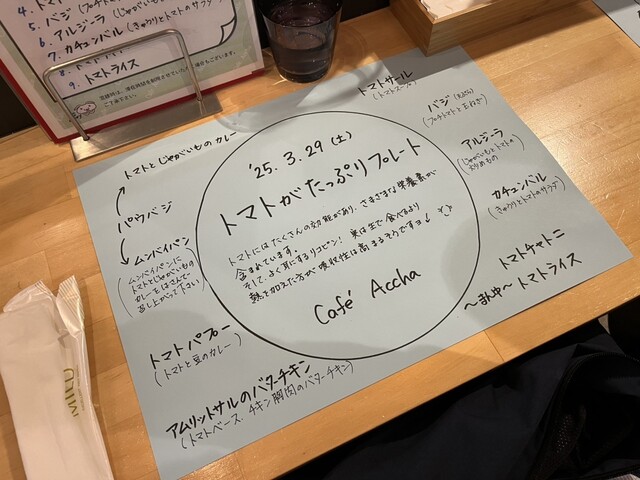 4. トマト
5. バジ (プチトマト
6. アルジーラ (じゃがいもとトマト
7. カチュンバル (きゅうりとトマトのサラダ)
8. トマト
9. トマトライス
トマトサール
(トマトスープ)
バジ
(プチトマトと玉ねぎ)
アルジーラ
(じゃがいもとトマトの
炒めもの)
カチュンバル
(きゅうりとトマトのサラダ)
トマトチャトニ
〜まん中〜 トマトライス
トマトとじゃがいものカレー
パウバジ
ムンバイパン
(ムンバイパンに
トマトとじゃがいもの
カレーをはさんで
召し上がって下さい)
トマトパプー
(トマトと豆のカレー)
アムリットサルのバターチキン
(トマトベース・チキン胸肉のバターチキン)
'25. 3. 29 (土)
トマトがたっぷりプレート
トマトにはたくさんの効能があり、さまざまな栄養素が
含まれています。
そして、よく耳にするリコピン! 実は生で食べるより
熱を加えた方が吸収性は高まるそうですョ
Café Accha